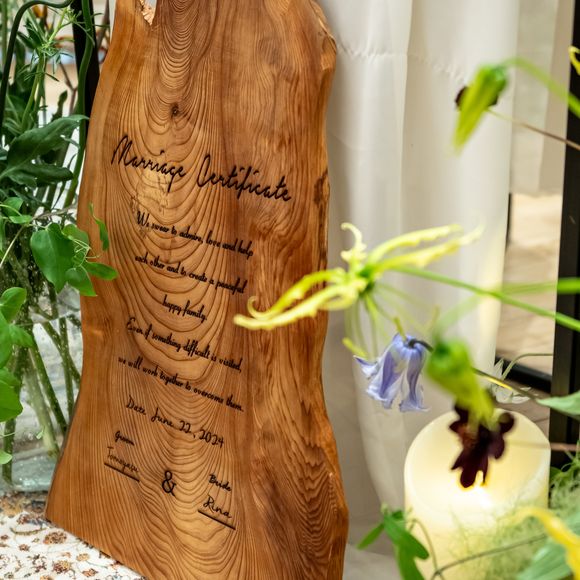 Marriage Certificate
We swear to admire, love and help
each other and to create a peaceful
happy family.
Even if something difficult is visited,
we will work together to overcome them.
Date June 22, 2024
Groom
Bride
&
Rina